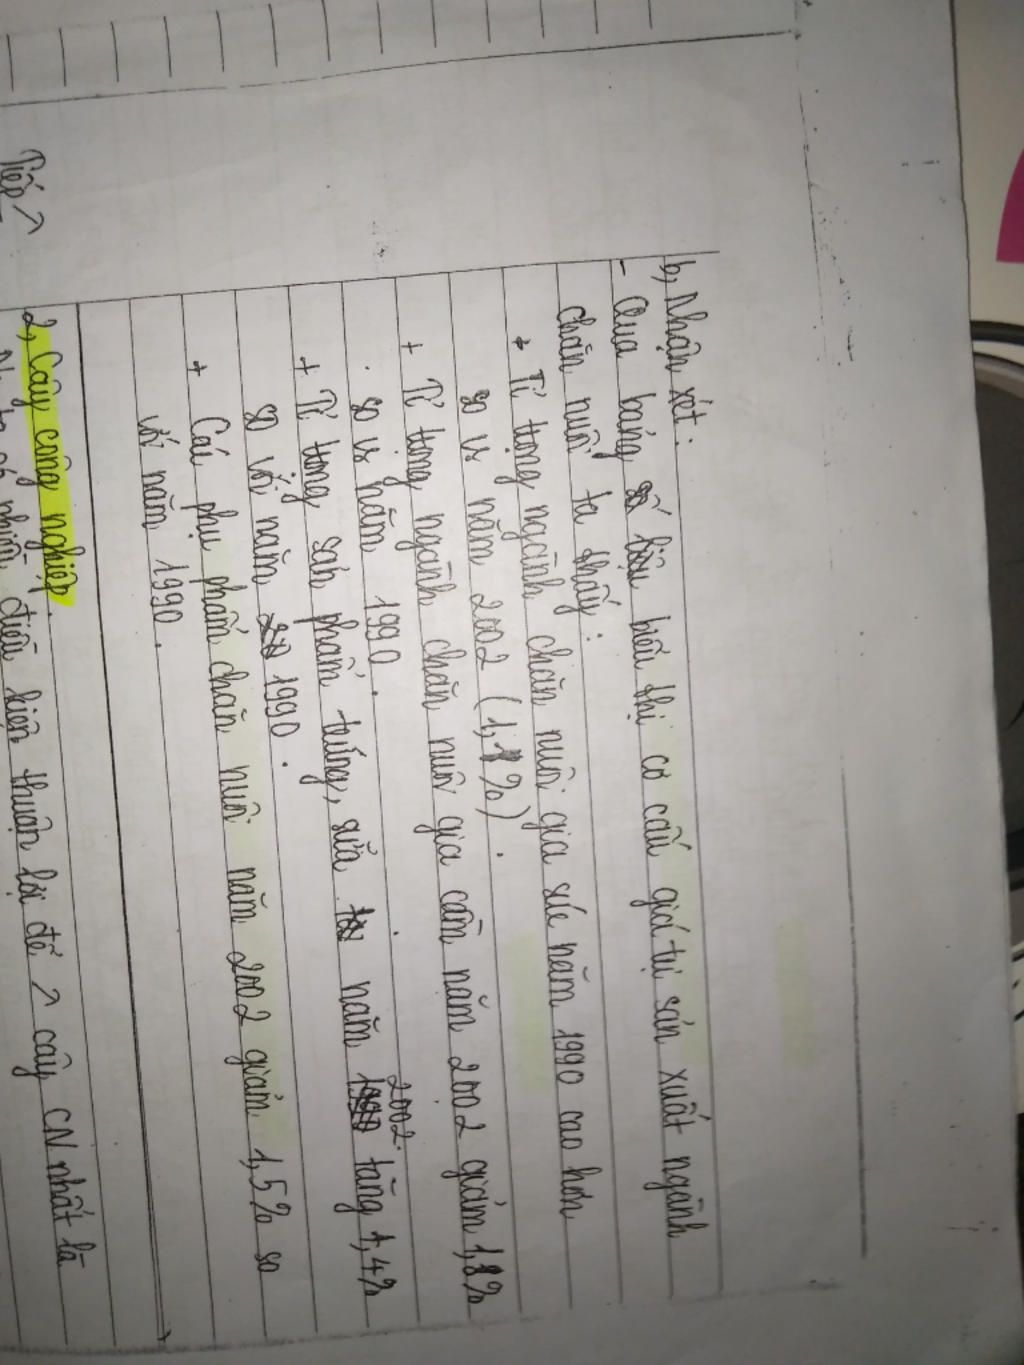 b, Nhận xét:
- Qua bảng số liệu biểu thị cơ cấu giá trị sản xuất ngành
chăn nuôi ta thấy:
+ Tỉ trọng ngành chăn nuôi gia súc năm 1990 cao hơn
so vs năm 2002 (1,1%).
+ Tỉ trọng ngành chăn nuôi gia cầm năm 2002 giảm 1,8%
so vs năm 1990.
+ Tỉ trọng sản phẩm trứng, sữa năm 2002 tăng 1,4%
so với năm 1990.
+ Các phụ phẩm chăn nuôi năm 2002 giảm 1,5% so
với năm 1990.
Tiếp ↗
2, Cây công nghiệp.
nhiều điều kiện thuận lợi để ↗ cây CN nhất là